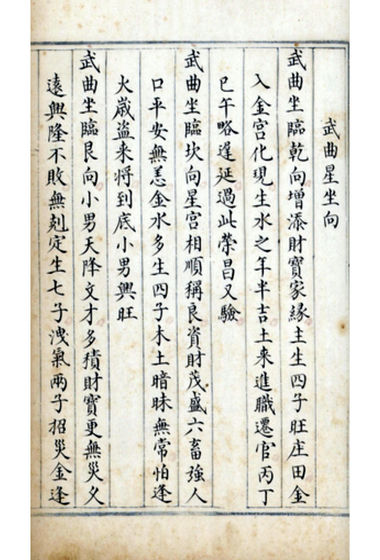 武曲星坐向
武曲坐臨乾向增添財寶家緣主生四子旺庄田金
入金宮化現生水之年半吉土来進職遷官丙丁
巳午略遲延過此榮昌又驗
武曲坐臨坎向星宮相順稱良資財茂盛六畜強人
口平安無恙金水多生四子木土暗昧無常怕逢
火歲盜来將到底小男興旺
武曲坐臨艮向小男天降文才多積財寶更無災久
遠興隆不敗無剋定生七子洩氣兩子招災金逢